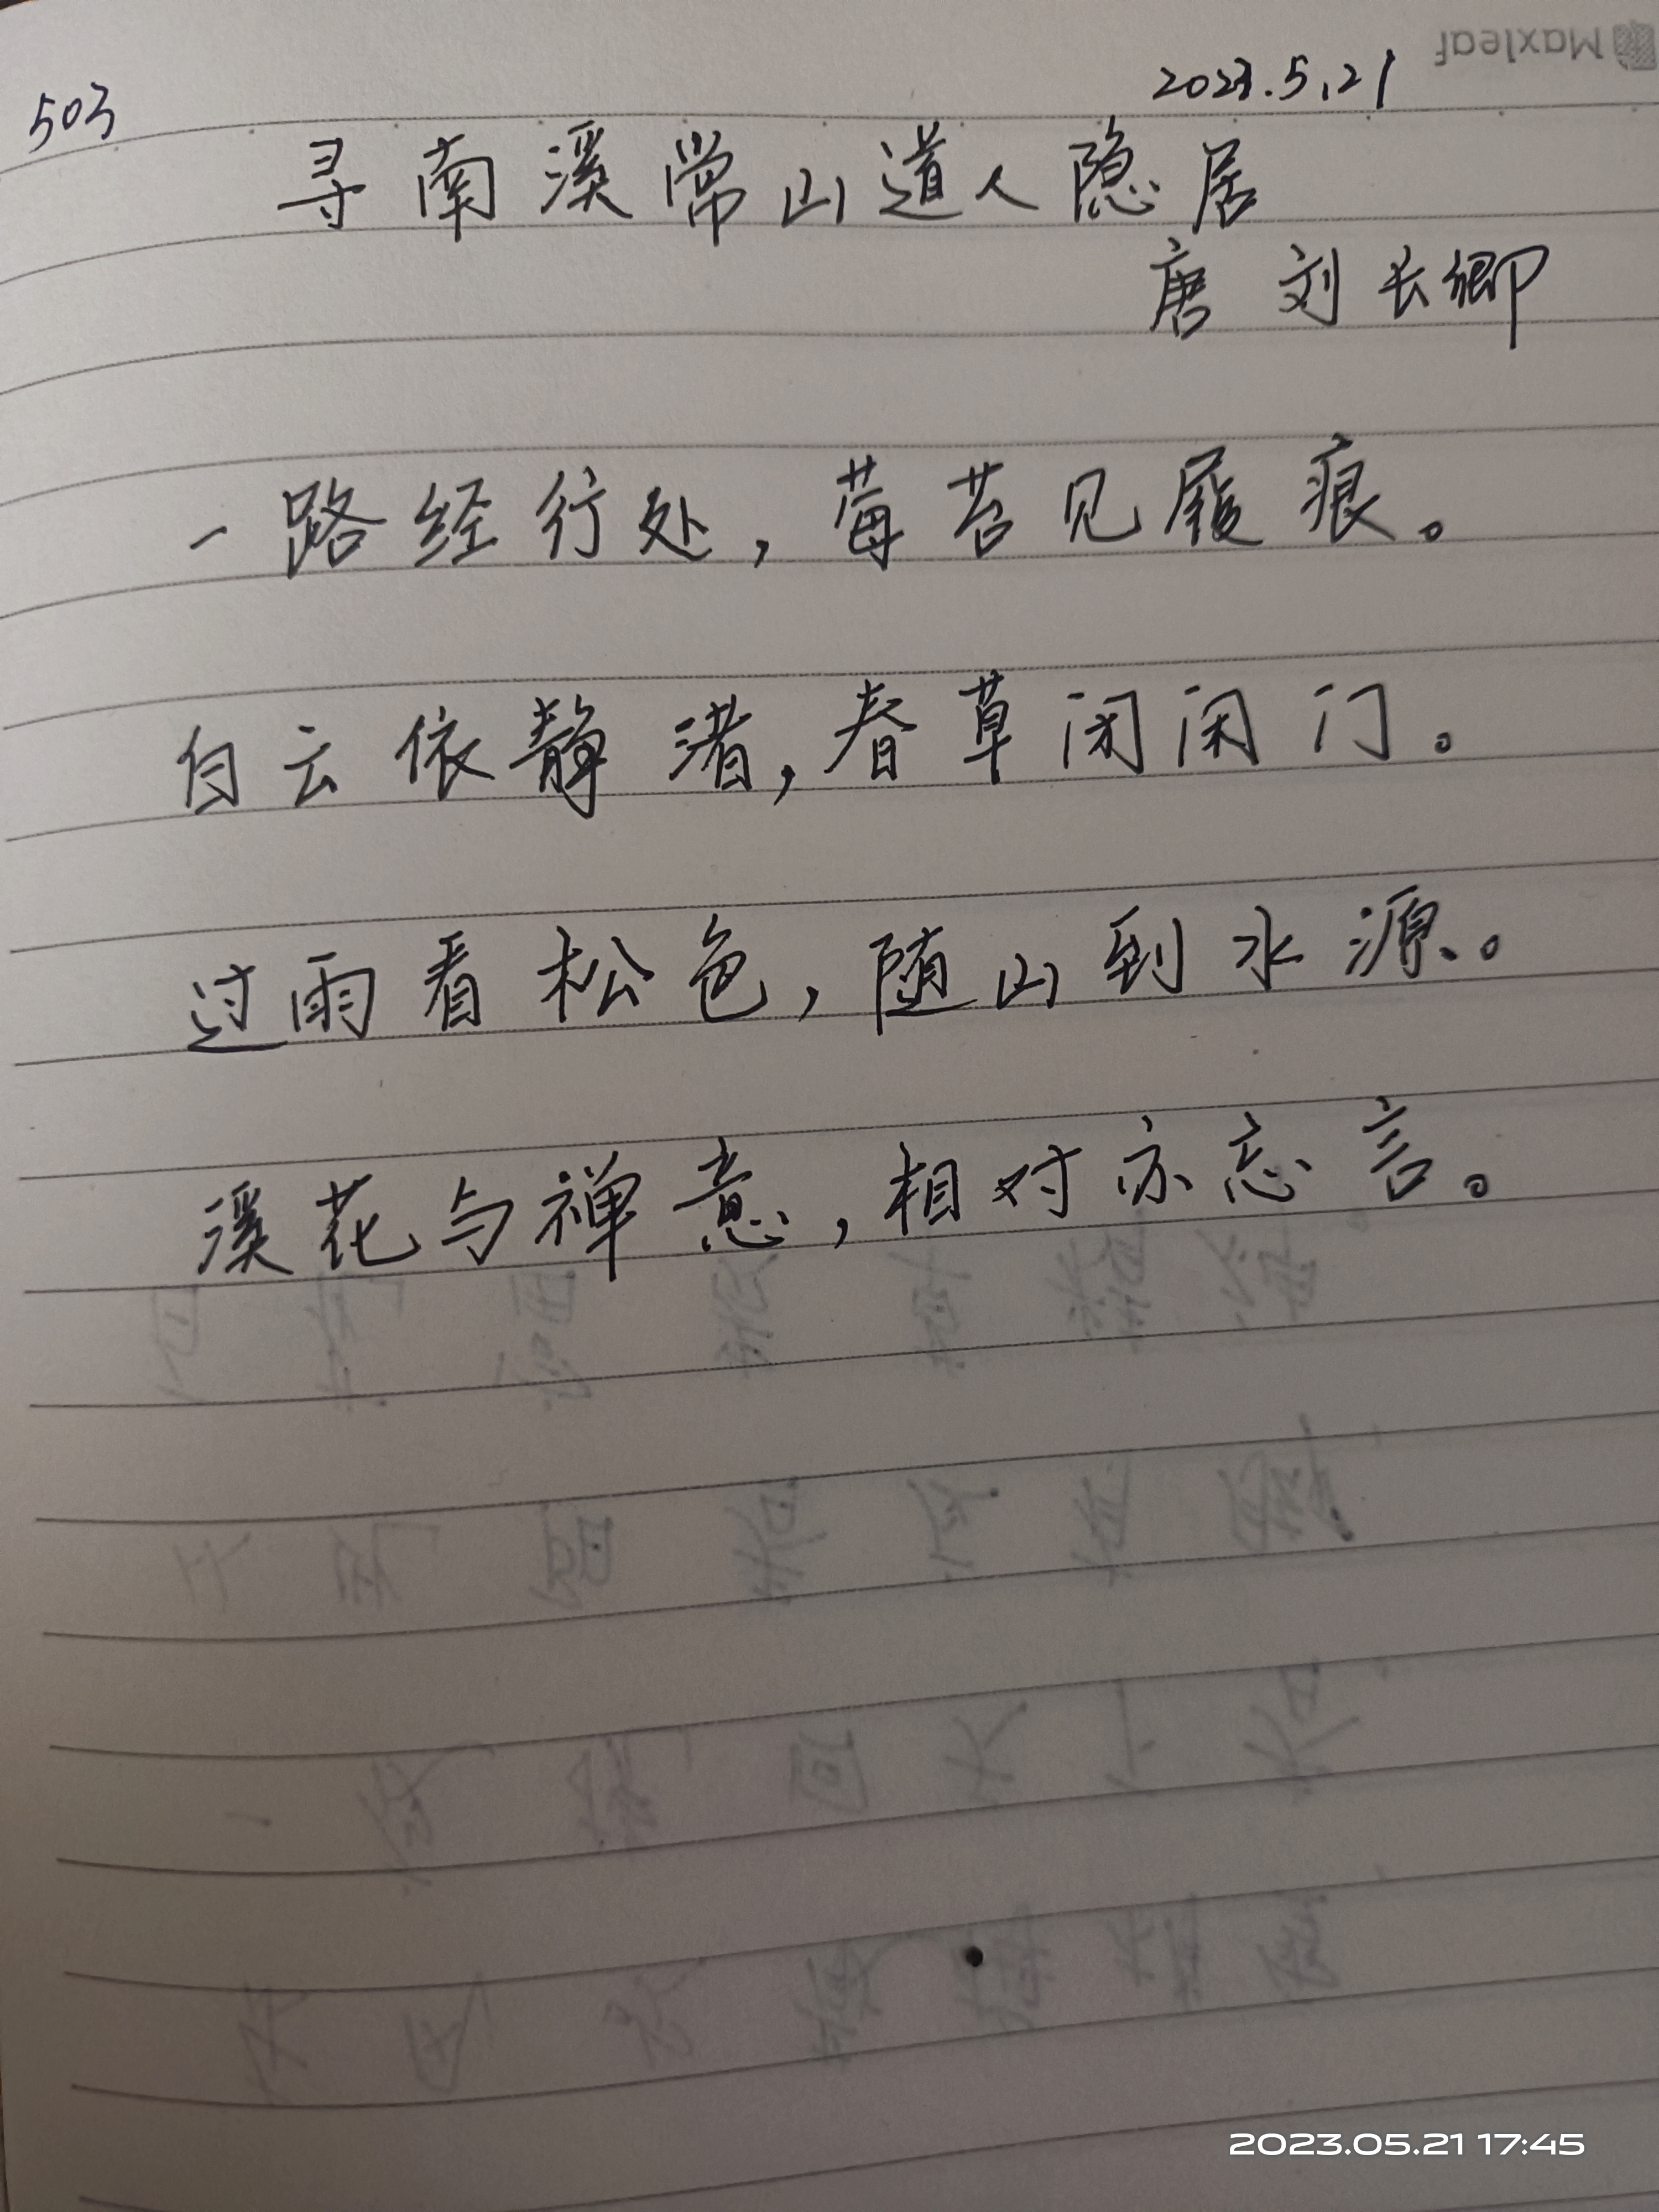 Maxleaf
503
2023.5.21
寻南溪常山道人隐居
唐 刘长卿
一路经行处，莓苔见屐痕。
白云依静渚，春草闭闲门。
过雨看松色，随山到水源。
溪花与禅意，相对亦忘言。
2023.05.21 17:45